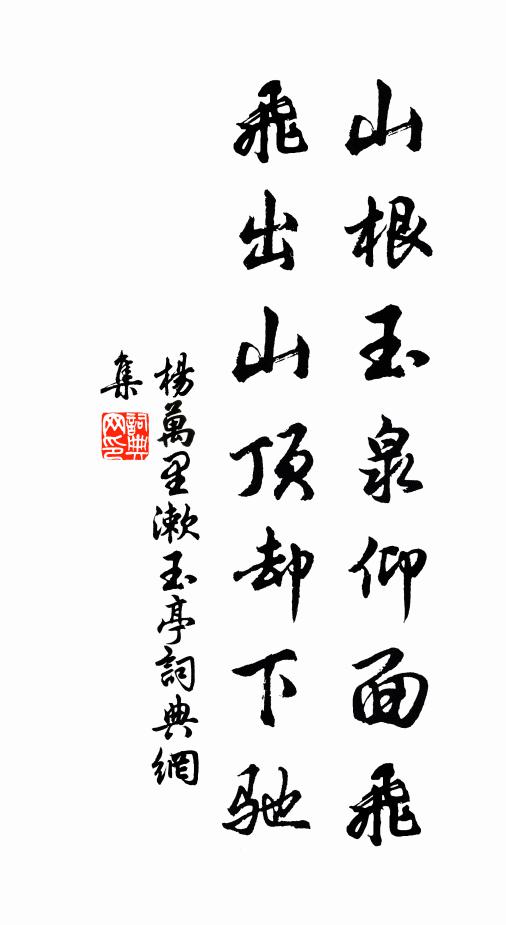 山根玉泉仰面飛
飛出山頂却下馳
楊萬里漱玉亭詞典網
集
詞典
网印